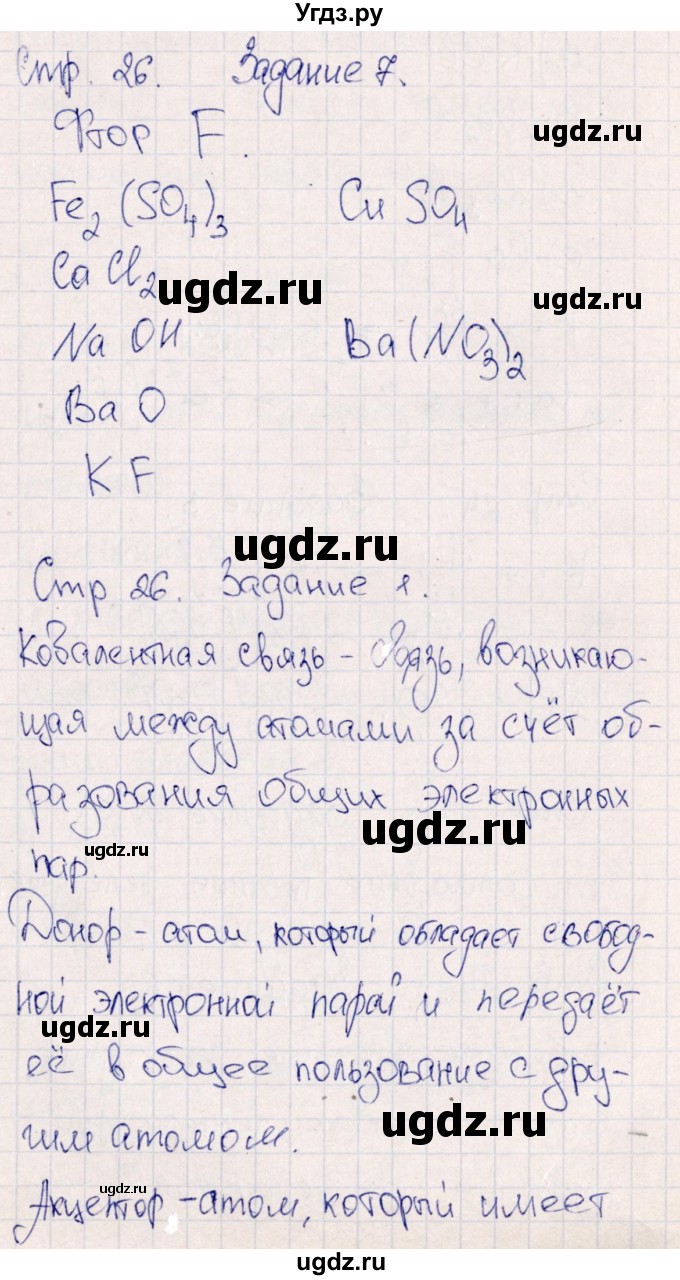 Угдз.ру
Стр. 26. Задание 7.
Фтор F.
ugdz.ru
Fe2(SO4)3 CuSO4
CaCl2
ugdz.ru
ugdz.ru
NaOH Ba(NO3)2
BaO
KF
ugdz.ru
Стр 26. Задание 1.
Ковалентная связь - связь, возникаю-
щая между атомами за счёт об-
разования общих электронных
ugdz.ru
пар.
ugdz.ru
Донор - атом, который обладает свобод-
ной электронной парой и передаёт
ugdz.ru
её в общее пользование с дру-
гим атомом.
ugdz.ru
ugdz.ru
Акцептор - атом, который имеет
ugdz.ru